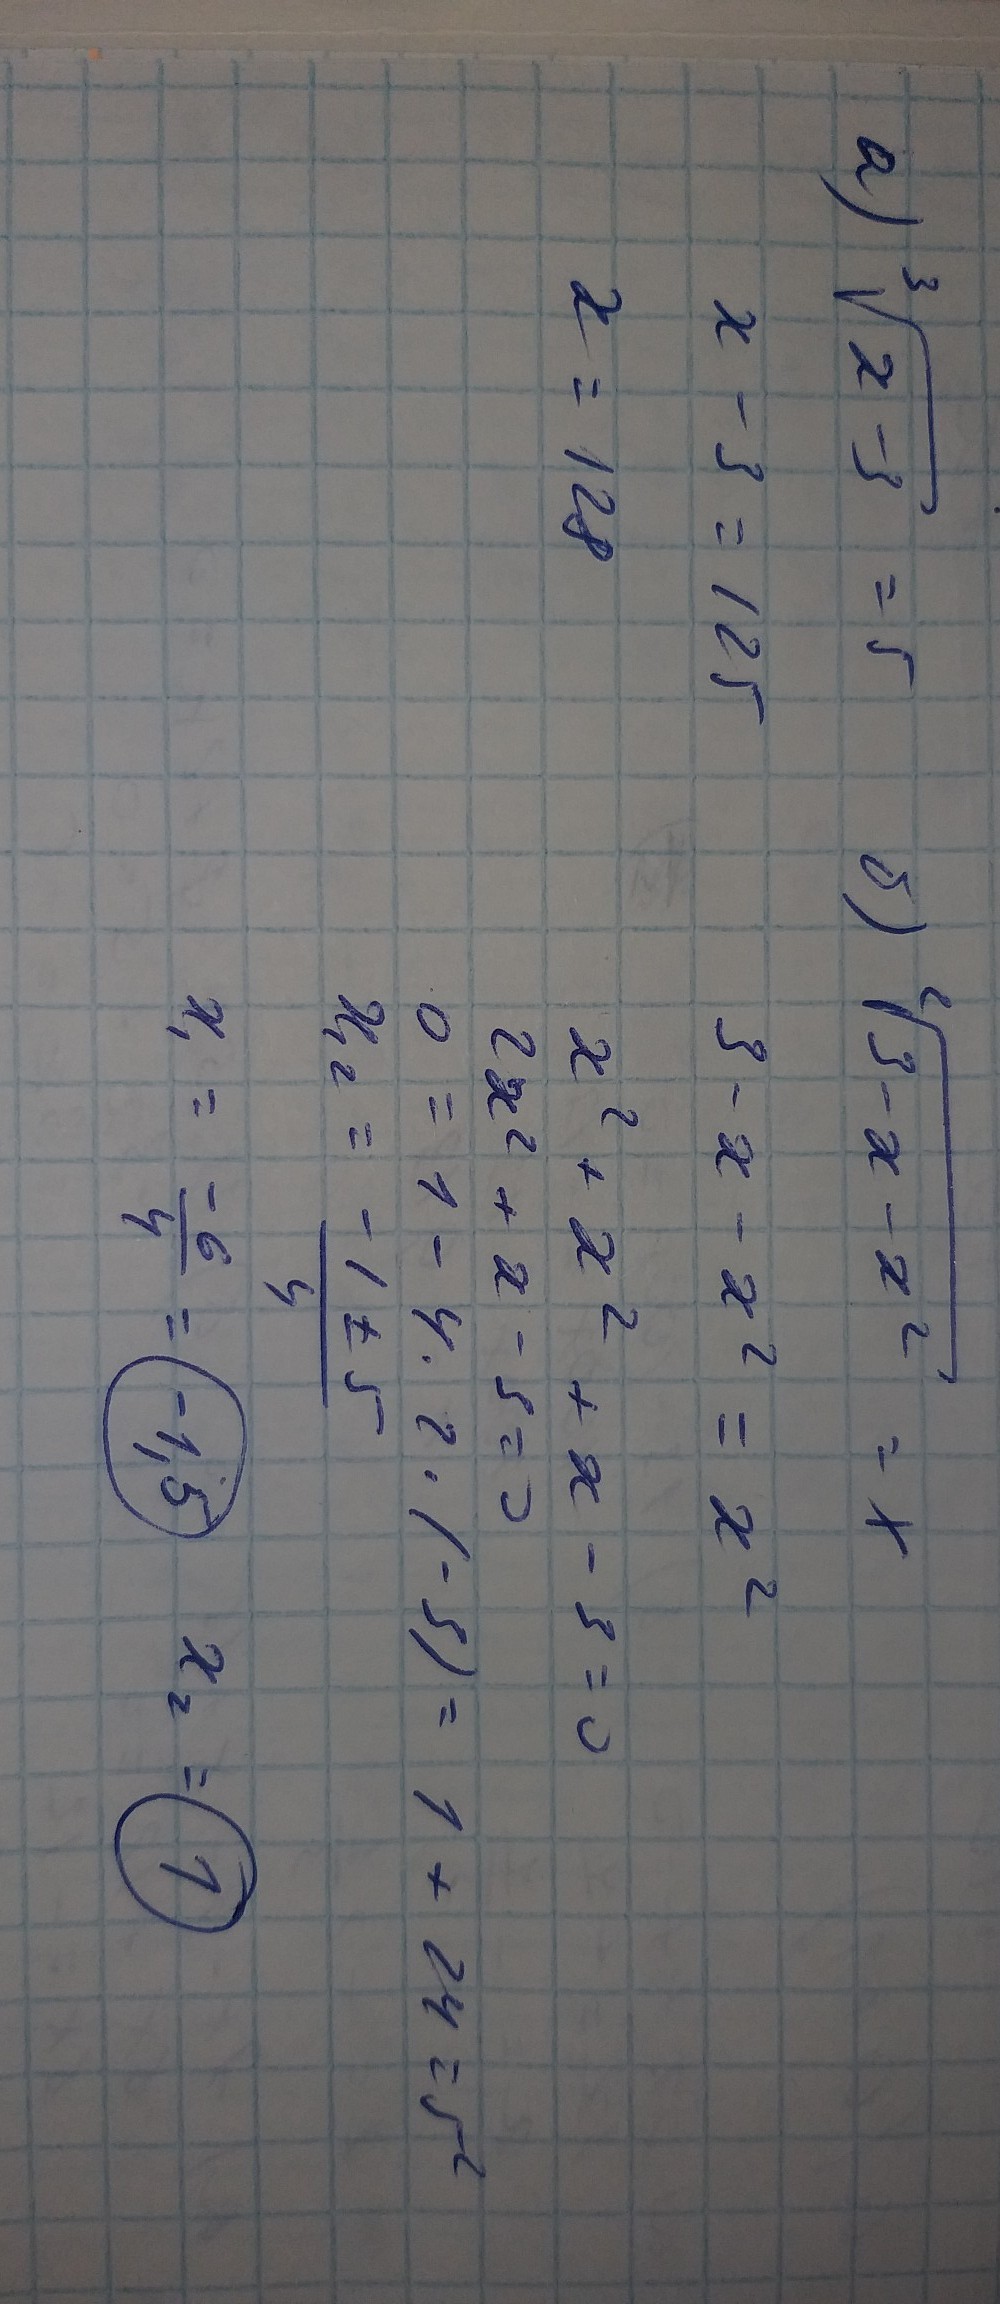 а) ³√(x-3) = 5
x - 3 = 125
x = 128
б) ²√(3-x-x²) = x
3 - x - x² = x²
x² + x² + x - 3 = 0
2x² + x - 3 = 0
D = 1 - 4 · 2 · (-3) = 1 + 24 = 5²
x₁,₂ = (-1 ± 5)/4
x₁ = -6/4 = -1,5 x₂ = 1